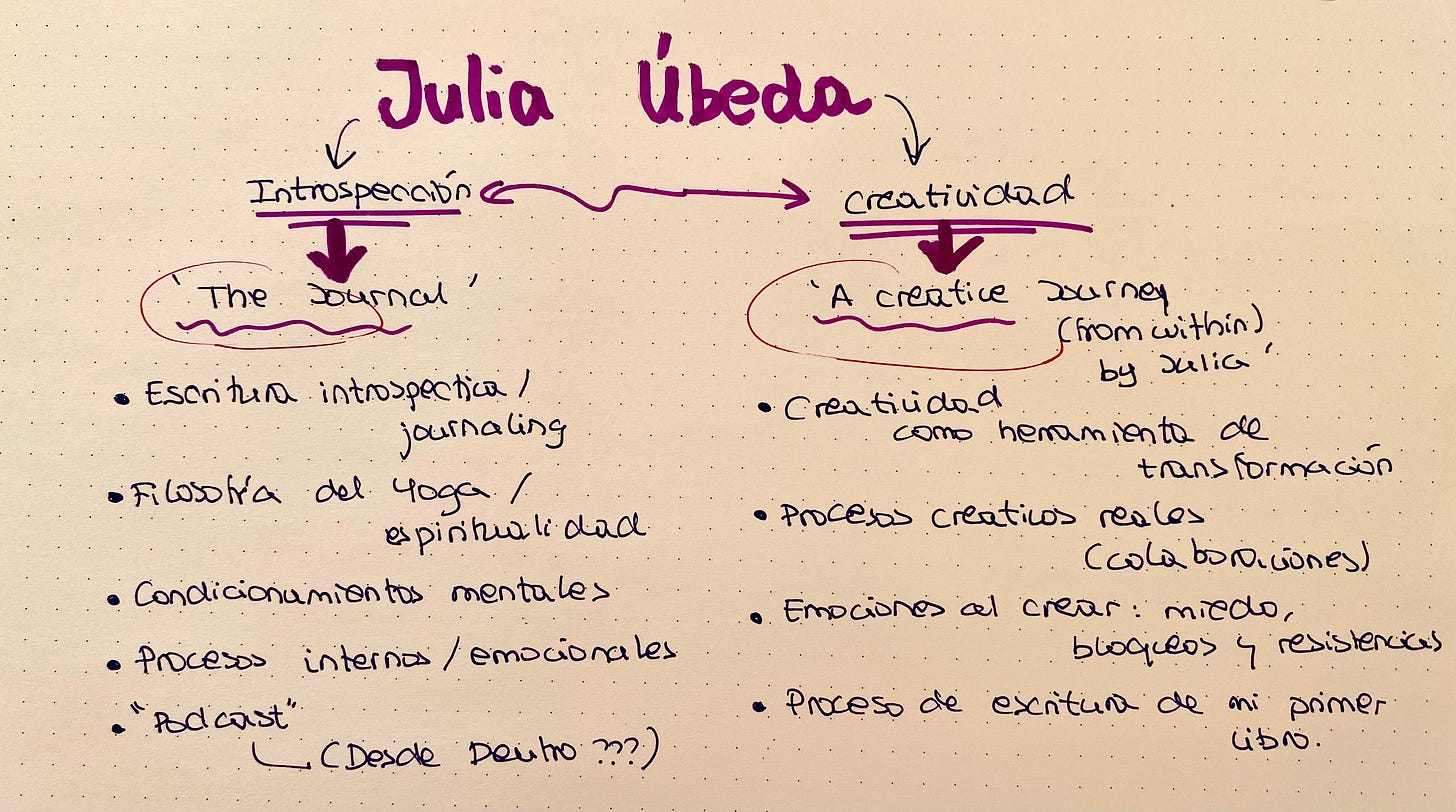 Julia Úbeda
Introspección
'The Journal'
• Escritura introspectiva /
journaling
• Filosofía del Yoga /
espiritualidad
• Condicionamientos mentales
• Procesos internos / emocionales
• "Podcast"
(Desde Dentro ???)
creatividad
'A creative Journey
(from within)
by Julia'
• Creatividad
como herramienta de
transformación
• Procesos creativos reales
(colaboraciones)
• Emociones al crear: miedo,
bloqueos y resistencias
• Proceso de escritura de mi primer
libro.